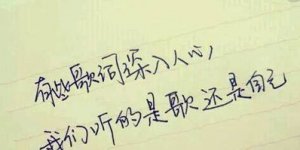 有些歌词深入人心
我们听的是歌还是自己